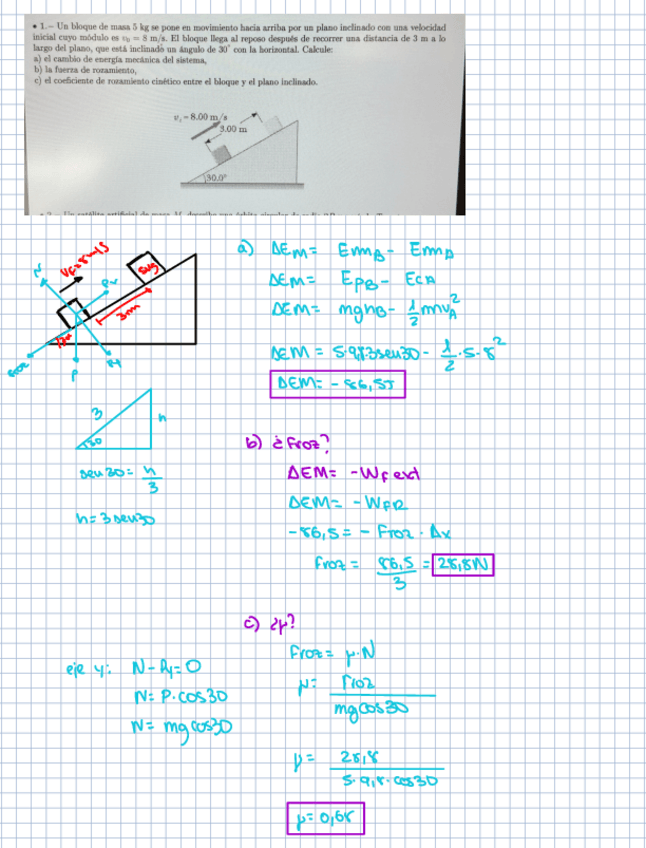 • 1.– Un bloque de masa 5 kg se pone en movimiento hacia arriba por un plano inclinado con una velocidad
inicial cuyo módulo es v₀ = 8 m/s. El bloque llega al reposo después de recorrer una distancia de 3 m a lo
largo del plano, que está inclinado un ángulo de 30° con la horizontal. Calcule:
a) el cambio de energía mecánica del sistema,
b) la fuerza de rozamiento,
c) el coeficiente de rozamiento cinético entre el bloque y el plano inclinado.
vᵢ = 8.00 m/s
3.00 m
30.0°
N
5kg
3m
P
a) ΔEM = EmB - EmA
ΔEM = EpB - EcA
ΔEM = mghB - 1/2 mvA²
ΔEM = 5·9,8·3sen30 - 1/2·5·8²
ΔEM = -86,5J
3
h
30
sen 30 = h/3
h = 3 sen30
b) ¿Froz?
ΔEM = -WFext
ΔEM = -WFR
-86,5 = - Froz · Δx
Froz = 86,5/3 = 28,8N
c) ¿μ?
Froz = μ·N
μ = Froz/mgcos30
μ = 28,8/5·9,8·cos30
μ = 0,68
eje y: N - Py = 0
N = P·cos30
N = mgcos30